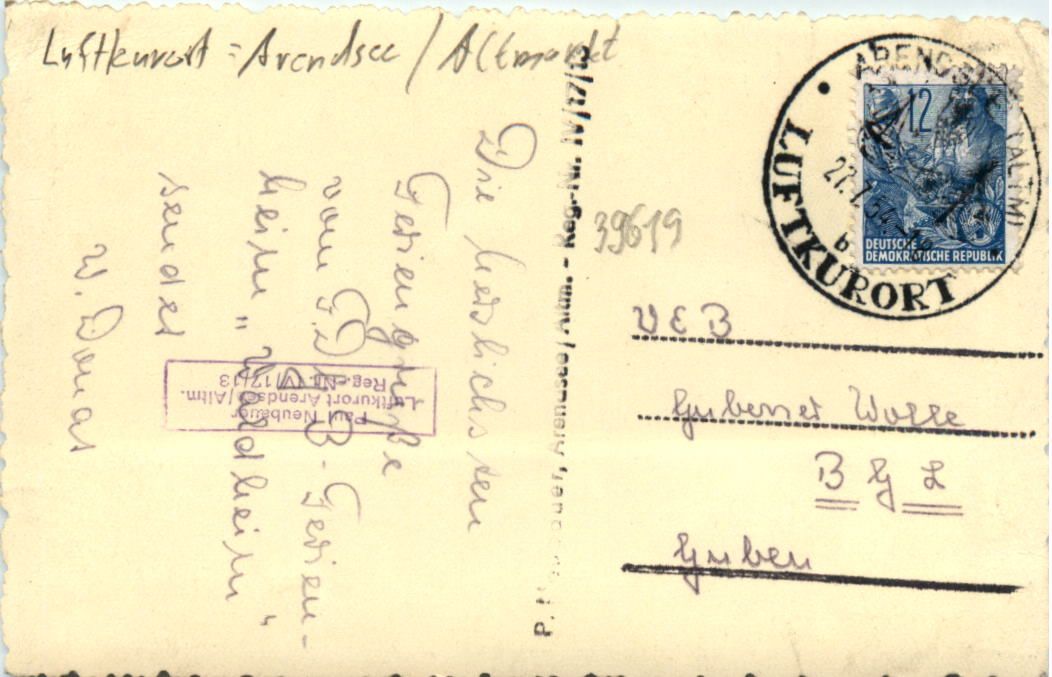 Luftkurort = Arendsee / Altmarkt
Die herzlichsten
Feriengrüße
vom FDGB-Ferien-
heim "Waldheim"
sendet
W. Donat
Paul Neubauer
Luftkurort Arendsee/Altm.
Reg.-Nr. IV/17/13
Arendsee/Altm. - Reg.-Nr. IV/17/13
39619
ARENDSEE (ALTM)
LUFTKURORT
b
12
DEUTSCHE
DEMOKRATISCHE REPUBLIK
VEB
Gubener Wolle
BGL
Guben